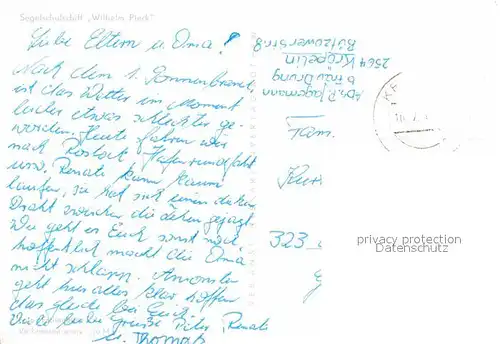 Segelschulschiff „Wilhelm Pieck"
Liebe Eltern u. Oma!
Nach dem 1. Sonnenbrand
ist das Wetter im Moment
leider etwas schlechter ge-
worden. Heute fahren wir
nach Rostock Hafenrundfahrt
usw. Renate kann kaum
laufen, sie hat sich einen dicken
Draht zwischen die Zehen gejagt.
Wie geht es Euch sonst noch,
hoffentlich macht die Oma
nicht schlapp. Ansonsten
geht hier alles klar, hoffen
das gleiche bei Euch.
Viele liebe Grüsse Peter, Renate
u. Thomas
Abs. P. Jagemann
b.
2564 Kröpelin
Bützowerstr. 8
Fam.
Kur
323
privacy protection
Datenschutz